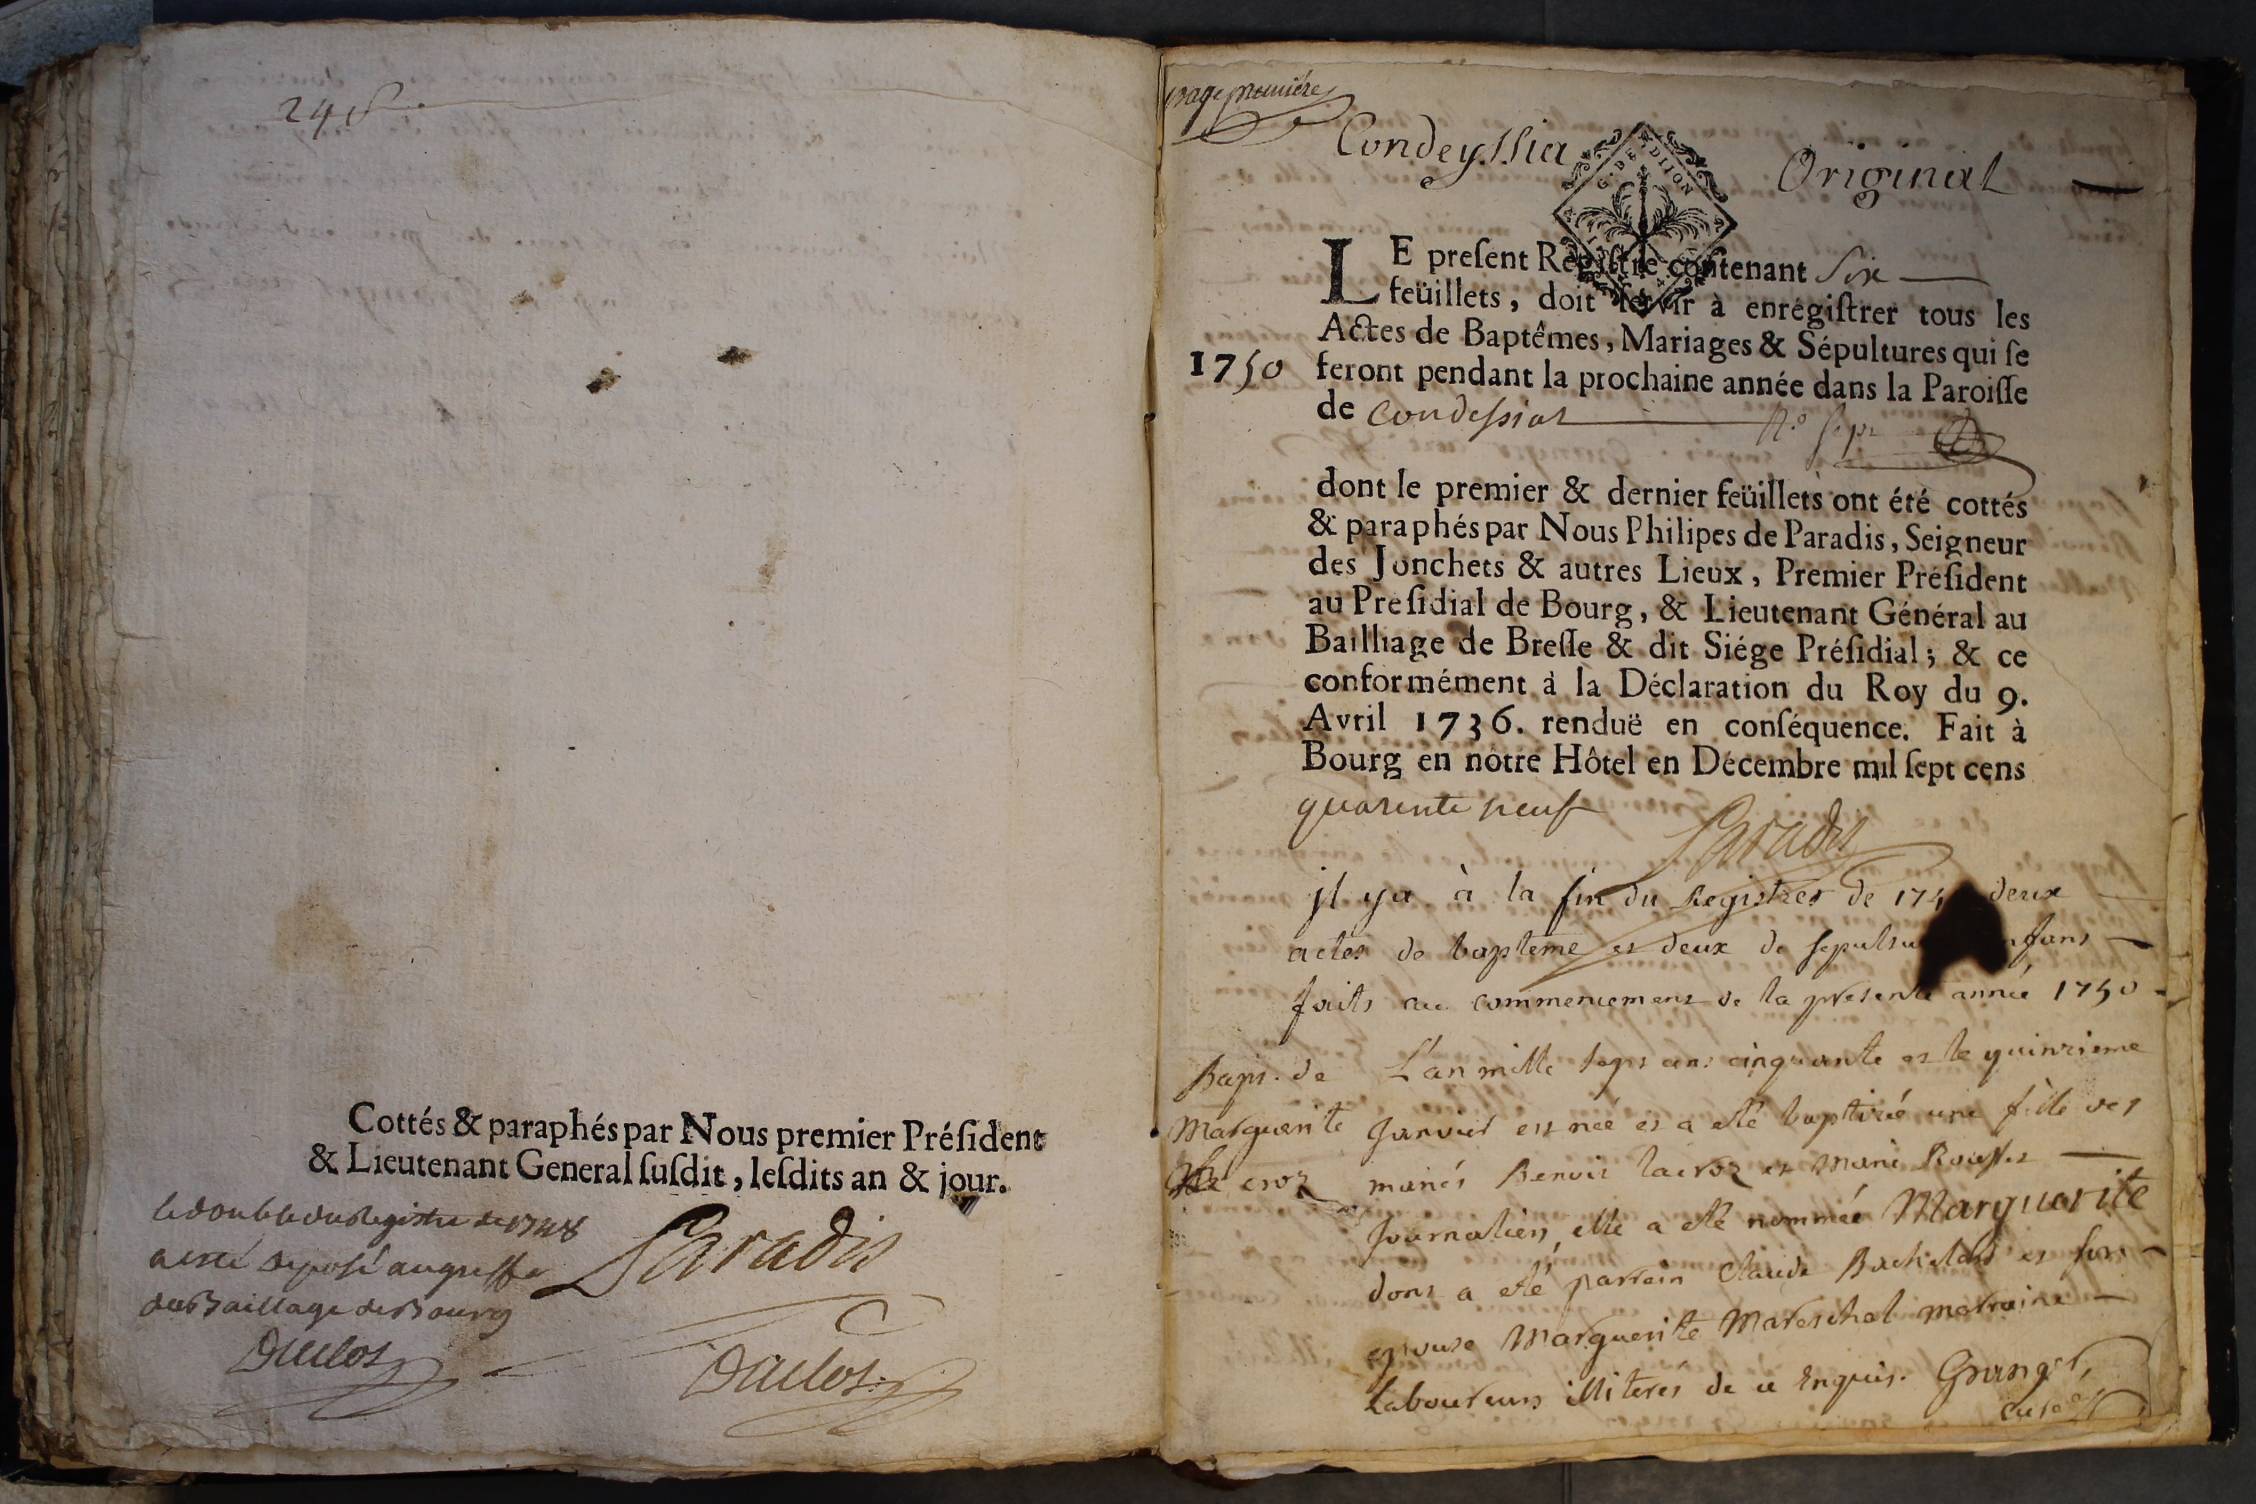 Cottés & paraphés par Nous premier Préſident
& Lieutenant General ſuſdit, leſdits an & jour.
le double du Registre de 1748
a esté deposé au greffe
du Baillage de Bourg
Paradis
Duclos
Duclos
page premiere
Condeyssia
Original
G. DE DIJON
LE preſent Regiſtre contenant Six
feüillets, doit ſervir à enrégiſtrer tous les
Actes de Baptêmes, Mariages & Sépultures qui ſe
1750 feront pendant la prochaine année dans la Paroiſſe
de Condessiat
N.o sept
dont le premier & dernier feüillets ont été cottés
& paraphés par Nous Philipes de Paradis, Seigneur
des Jonchets & autres Lieux, Premier Préſident
au Preſidial de Bourg, & Lieutenant Général au
Bailliage de Breſſe & dit Siége Préſidial; & ce
conformément à la Déclaration du Roy du 9.
Avril 1736. renduë en conſéquence. Fait à
Bourg en nôtre Hôtel en Décembre mil ſept cens
quarente neuf
Paradis
il y a à la fin du Registres de deux
actes de bapteme et deux de
faits au commencement de la presente année 1750
Bapt. de L'an mille sept cens cinquante et le quinzieme
Marguerite Janvier est née et a eté baptizé une fille des
croz mariés Benoit lacroz et Marie
Journaliers, elle a eté nommée Marguerite
dont a eté parrein Claude Bachelard et son
epouse Marguerite Mareschal marraine
Laboureurs illiterés de ce enquis. Granger
curé